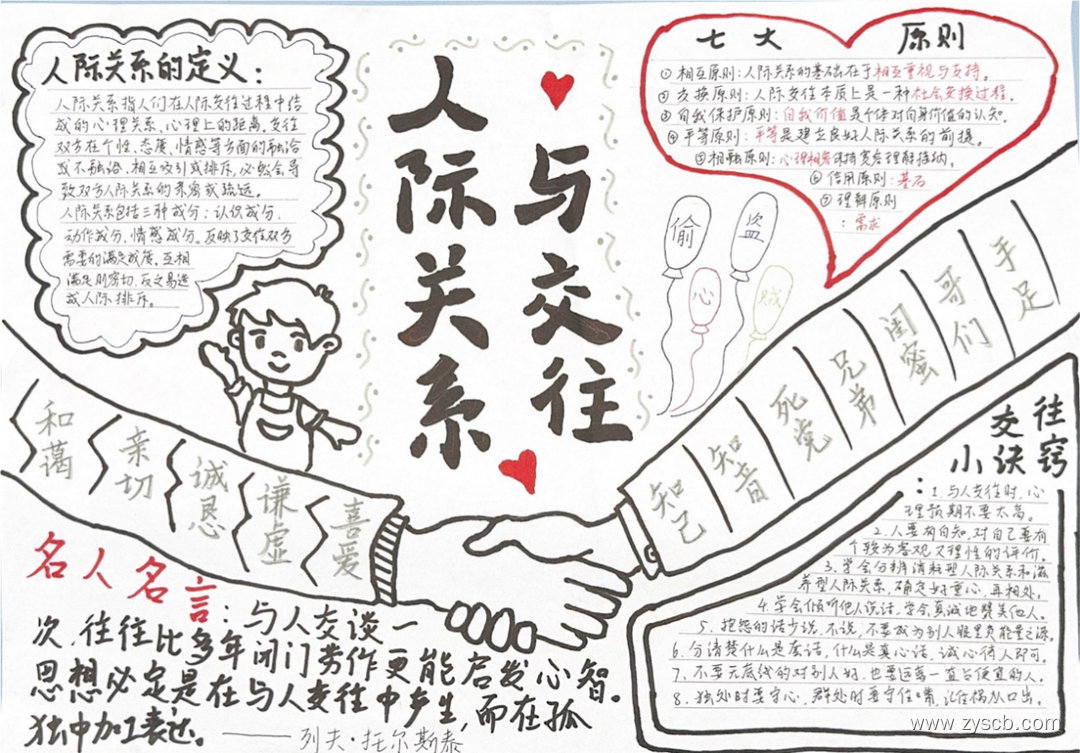 人际关系的定义：
人际关系指人们在人际交往过程中结
成的心理关系、心理上的距离。交往
双方在个性、态度、情感等方面的融洽
或不融洽、相互吸引或排斥，必然会导
致双方人际关系的亲密或疏远。
人际关系包括三种成分：认识成分、
动作成分、情感成分。反映了交往双方
需要的满足程度，互相
满足则密切，反之易造
成人际排斥。
人际关系
与交往
七大原则
①相互原则：人际关系的基础在于相互重视与支持。
②交换原则：人际交往本质上是一种社会交换过程。
③自我保护原则：自我价值是个体对自身价值的认知。
④平等原则：平等是建立良好人际关系的前提。
⑤相容原则：心理相容保持宽容理解接纳。
⑥信用原则：基石
⑦理解原则
：需求
偷
盗
心
贼
和蔼
亲切
诚恳
谦虚
喜爱
知己
知音
死党
兄弟
闺蜜
哥们
手足
交往
小诀窍：
1、与人交往时，心
理预期不要太高。
2、人要有自知，对自己要有
个较为客观又理性的评价。
3、学会分辨消耗型人际关系和滋
养型人际关系，确定好重心，再相处。
4、学会倾听他人说话，学会真诚地赞美他人。
5、抱怨的话少说，不说，不要成为别人眼里负能量之源。
6、分清楚什么是废话，什么是真心话，诚心待人即可。
7、不要无底线的对别人好，也要远离一直占便宜的人。
8、独处时要守心，群处时要守住嘴，记住祸从口出。
名人名言：与人交谈一
次，往往比多年闭门劳作更能启发心智。
思想必定是在与人交往中产生，而在孤
独中加工表达。——列夫·托尔斯泰
www.zyscb.com